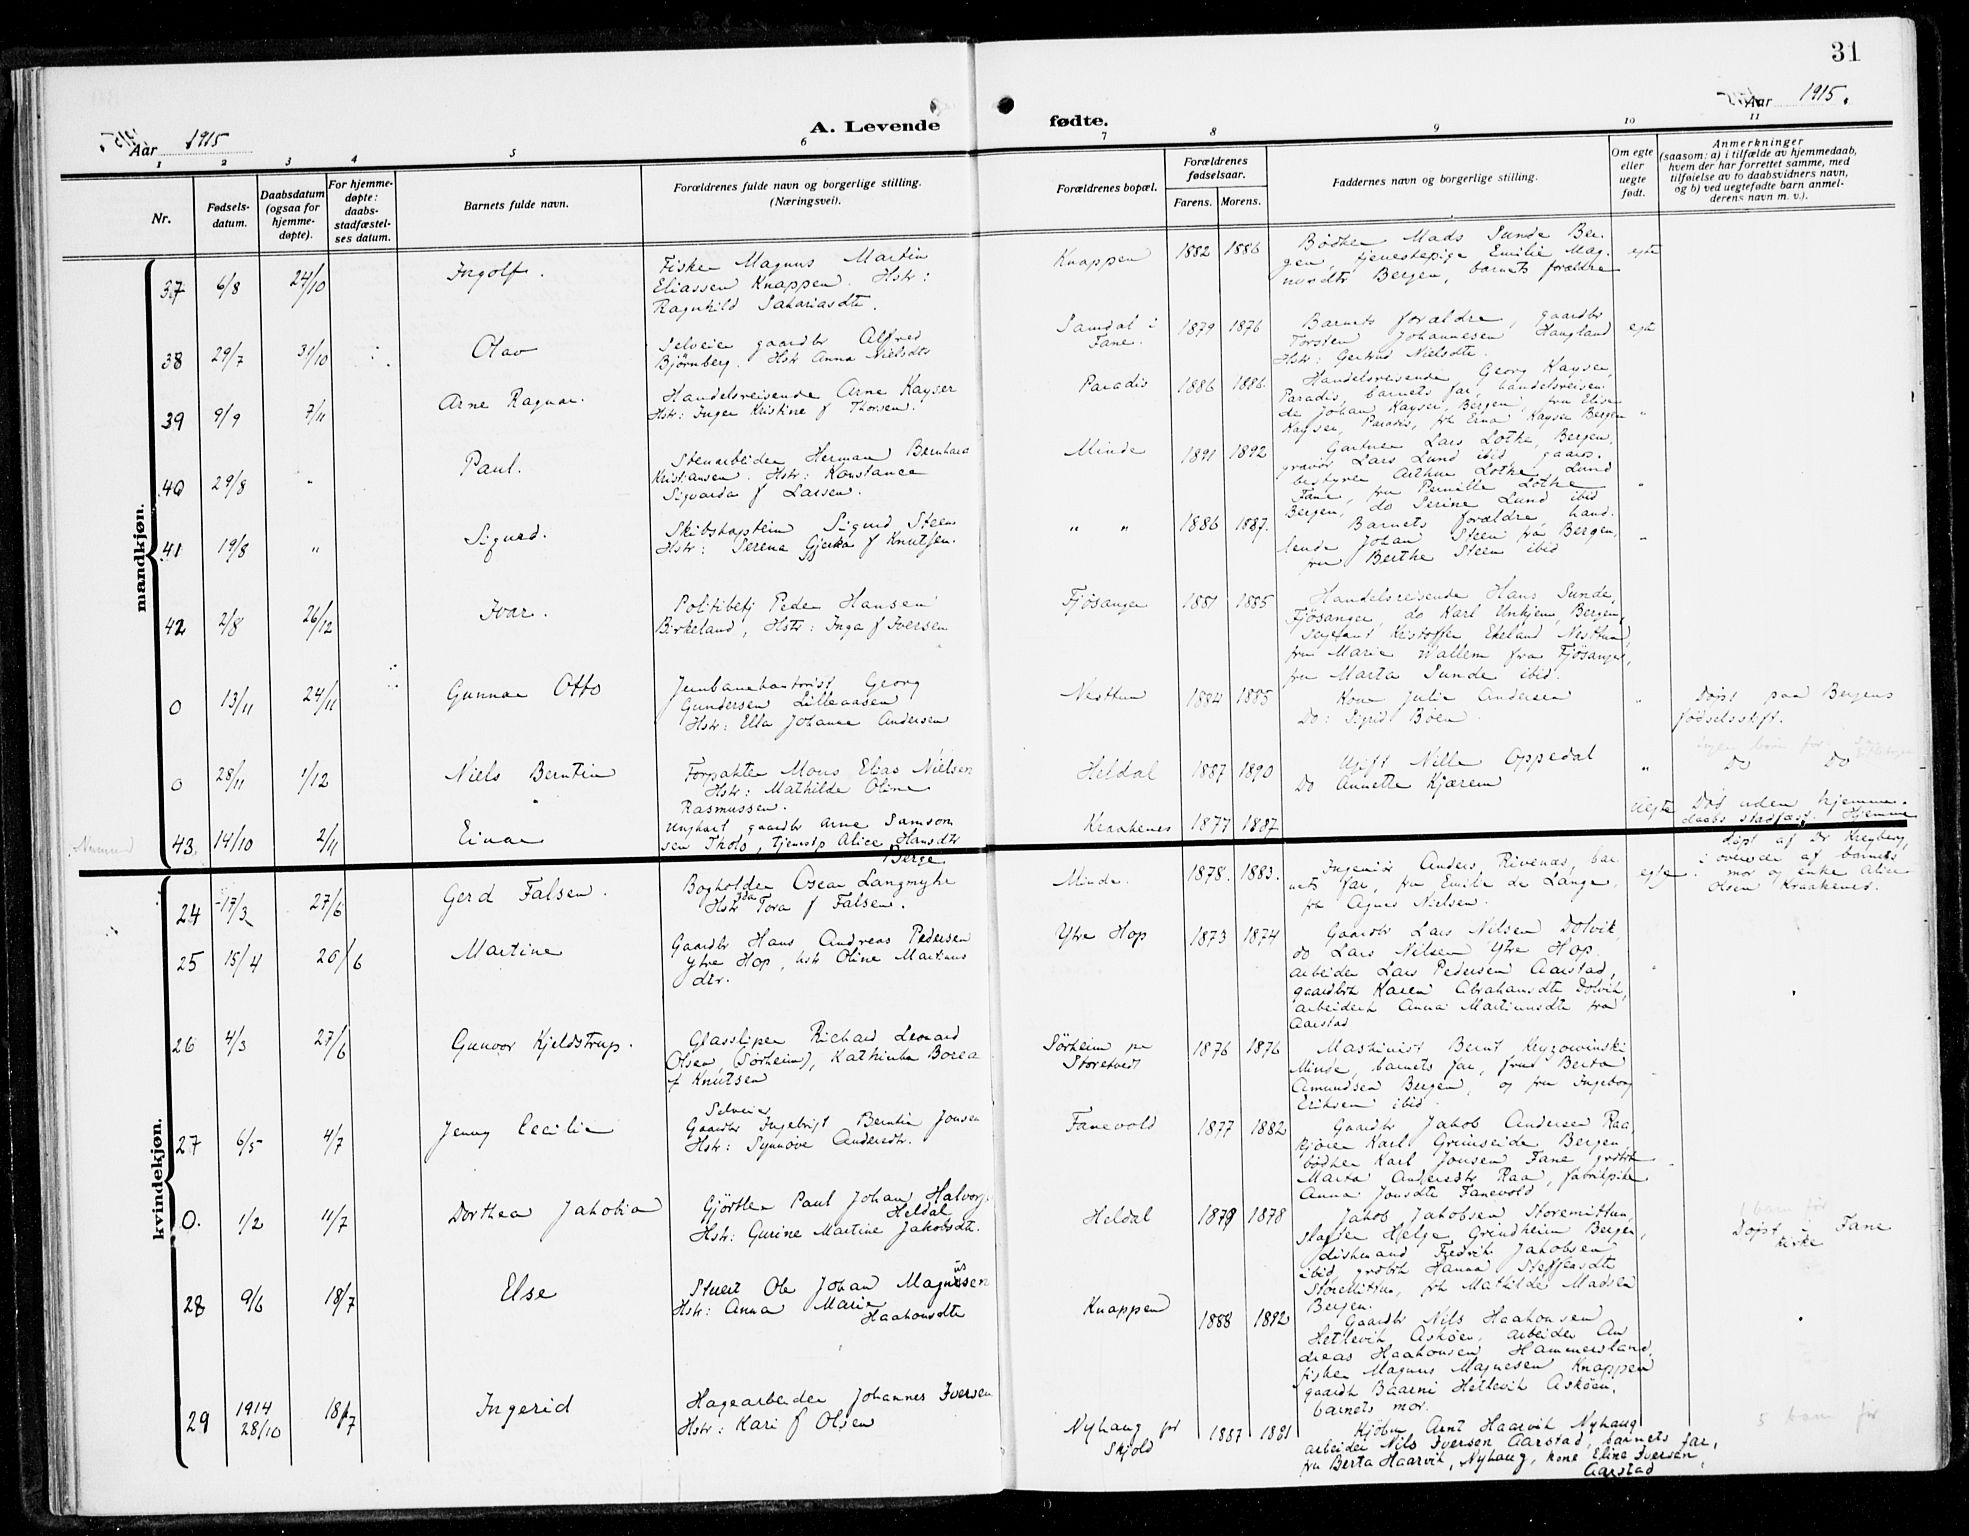 31
Aar 1915
A. Levende fødte.
Aar 1915.
1 2 3 4 5 6 7 8 9 10 11
Nr.
Fødsels-
datum.
Daabsdatum
(ogsaa for
hjemme-
døpte).
For hjemme-
døpte:
daabs-
stadfæstel-
ses datum.
Barnets fulde navn.
Forældrenes fulde navn og borgerlige stilling.
(Næringsvei).
Forældrenes bopæl.
Forældrenes
fødselsaar.
Farens. Morens.
Faddernes navn og borgerlige stilling.
Om egte
eller
uegte
født.
Anmerkninger
(saasom: a) i tilfælde av hjemmedaab,
hvem der har forrettet samme, med
tilføielse av to daabsvidners navn,
og b) ved uegtefødte barn anmel-
derens navn m. v.).
mandkjøn.
37 6/8 24/10 Ingolf.
Fisker Magnus Martin
Eliassen Knappen. Hstr:
Ragnhild Sakariasdtr.
Knappen 1882 1886
Bødker Mads Sunde Ber-
gen, tjenestepige Emilie Mag-
nusdtr Bergen, barnets forældre
egte
38 29/7 31/10 Olav
Selveier gaardbr Alfred
Bjørnberg. Hstr Anna Nielsdtr
Samdal i
Fane.
1879 1876
Barnets forældre, gaardbr
Torsten Johannesen Haugland
Hstr: Gertrud Nielsdtr.
egte
39 9/9 7/11 Arne Ragnar.
Handelsreisende Arne Kayser
Hstr: Inger Kristine f Thorsen.
Paradis 1886 1886
Handelsreisende Georg Kayser,
Paradis, barnets far, handelsreisen-
de Johan Kayser, Bergen, fru Elise
Kayser, Paradis, frk Erna Kayser Bergen
"
40 29/8 " Paul.
Stenarbeider Herman Bernhard
Kristiansen. Hstr: Konstance
Sigvarda f Larsen.
Minde 1891 1892
Gartner Lars Lothe, Bergen,
gravør Lars Lund ibid gaards-
bestyrer Arthur Lothe, Lund
Fane, fru Pernille Lothe
Bergen, do Serine Lund ibid
"
41 19/8 " Sigurd.
Skibskaptein Sigurd Steen
Hstr: Serena Gjerka f Knutsen.
" " 1886 1887.
Barnets forældre hand-
lende Johan Steen fra Bergen,
fru Berthe Steen ibid
"
42 2/8 26/12 Ivar.
Politibetj Peder Hansen
Birkeland, Hstr: Inga f Iversen
Fjøsanger 1881 1885
Handelsreisende Hans Sunde,
Fjøsanger, do Karl Unhjem, Bergen,
Sergeant Kristoffer Ekeland Nesttun,
fru Marie Wallem fra Fjøsanger,
fru Marta Sunde ibid.
0 13/11 24/11 Gunnar Otto
Jernbanekontorist Georg
Gundersen Lilleaasen
Hstr: Ella Johanne Andersen
Nesttun 1884 1885
Kone Julie Andersen
Do: Sigrid Boen
"
Døpt paa Bergens
fødselsstift.
0 28/11 1/12 Niels Berntin
Forpakter Mons Elias Nielsen
Hstr: Mathilde Oline
Rasmussen.
Heldal 1887 1890
Ugift Nille Oppedal
Do Annette Kjærem
"
Do Do
43 14/10 2/11 Einar
Ungkarl gaardbr Arne Samson
sen Tholo, tjenestp Alice Hansdtr
Berge
Kraakenes 1877 1887
Uegte
Død uden hjemme-
daabs stadfæst. Hjemme
døpt af Dr Kreyberg,
i overvær af barnets
mor og enke Alice
Olsen Kraakenes.
kvindekjøn.
24 17/3 27/6 Gerd Falsen.
Bogholder Oscar Langmyhr
Hstr Ida Tora f Falsen.
Minde. 1878. 1883.
Ingeniør Anders Rivenæs, bar-
nets far, fru Emilie de Lange,
frk Agnes Nielsen.
egte
25 15/4 26/6 Martine
Gaardbr Hans Andreas Pedersen
Ytre Hop, hstr Oline Martinus
dtr.
Ytre Hop 1873 1874
Gaardbr Lars Nilsen Dolvik,
do Lars Nilsen Ytre Hop.
arbeider Lars Pedersen Aarstad,
gaardbrk Karen Abrahamsdtr Dolvik,
arbeiderk Anna Martinusdtr fra
Aarstad
26 4/3 27/6 Gunvor Kjeldstrup.
Glassliper Richard Leonard
Olsen (Sørheim), Kathinka Borea
f Knutsen
Sørheim pr
Storetvedt
1876 1876
Maskinist Bernt Kryzowinski
Minde, barnets far, frue Berta
Amundsen Bergen, og fru Ingeborg
Eriksen ibid.
27 6/5 4/7 Jenny Cecilie
Selveier
Gaardbr Ingebrigt Berntin Jonsen
Hstr: Synnøve Andersdtr.
Fanevold 1877 1882
Gaardbr Jakob Andersen Raa
kjører Karl Grimseide Bergen,
bødker Karl Jonsen Fane grdbrk
Marta Andersdtr Raa, fabrikpike
Anna Jonsdtr Fanevold
0. 1/2 11/7 Dorthea Jakobia
Gjørtler Paul Johan Halvors
Heldal
Hstr: Gurine Martine Jakobsdtr.
Heldal 1879 1878
Jakob Jakobsen Storemittun,
slagter Helge Grindheim Bergen,
diskmand Fredrik Jakobsen
ibid grdbrk Hanna Steffensdtr
Storemittun, frk Mathilde Madsen
Bergen.
1 barn før
Døpt i Fane
kirke
28 9/6 18/7 Else
Stuert Ole Johan Magnussen
Hstr: Anna Marie
Haakonsdtr
Knappen 1888 1892
Gaardbr Nils Haakonsen
Hetlevik Askøen, arbeider An
dreas Haakonsen Hammersland,
fisker Magnus Magnesen Knappen
gaardk Baarni Hetlevik Askøen,
barnets mor.
29 1914
28/10 18/7 Ingerid
Hagearbeider Johannes Iversen
Hstr: Kari f Olsen
Nyhaug pr
Skjold
1887 1881
Kjøbm. Arnt Haarvik Nyhaug
arbeider Nils Iversen Aarstad, barnets far,
fru Berta Haarvik, Nyhaug, kone Eline Iversen,
Aarstad
5 barn før